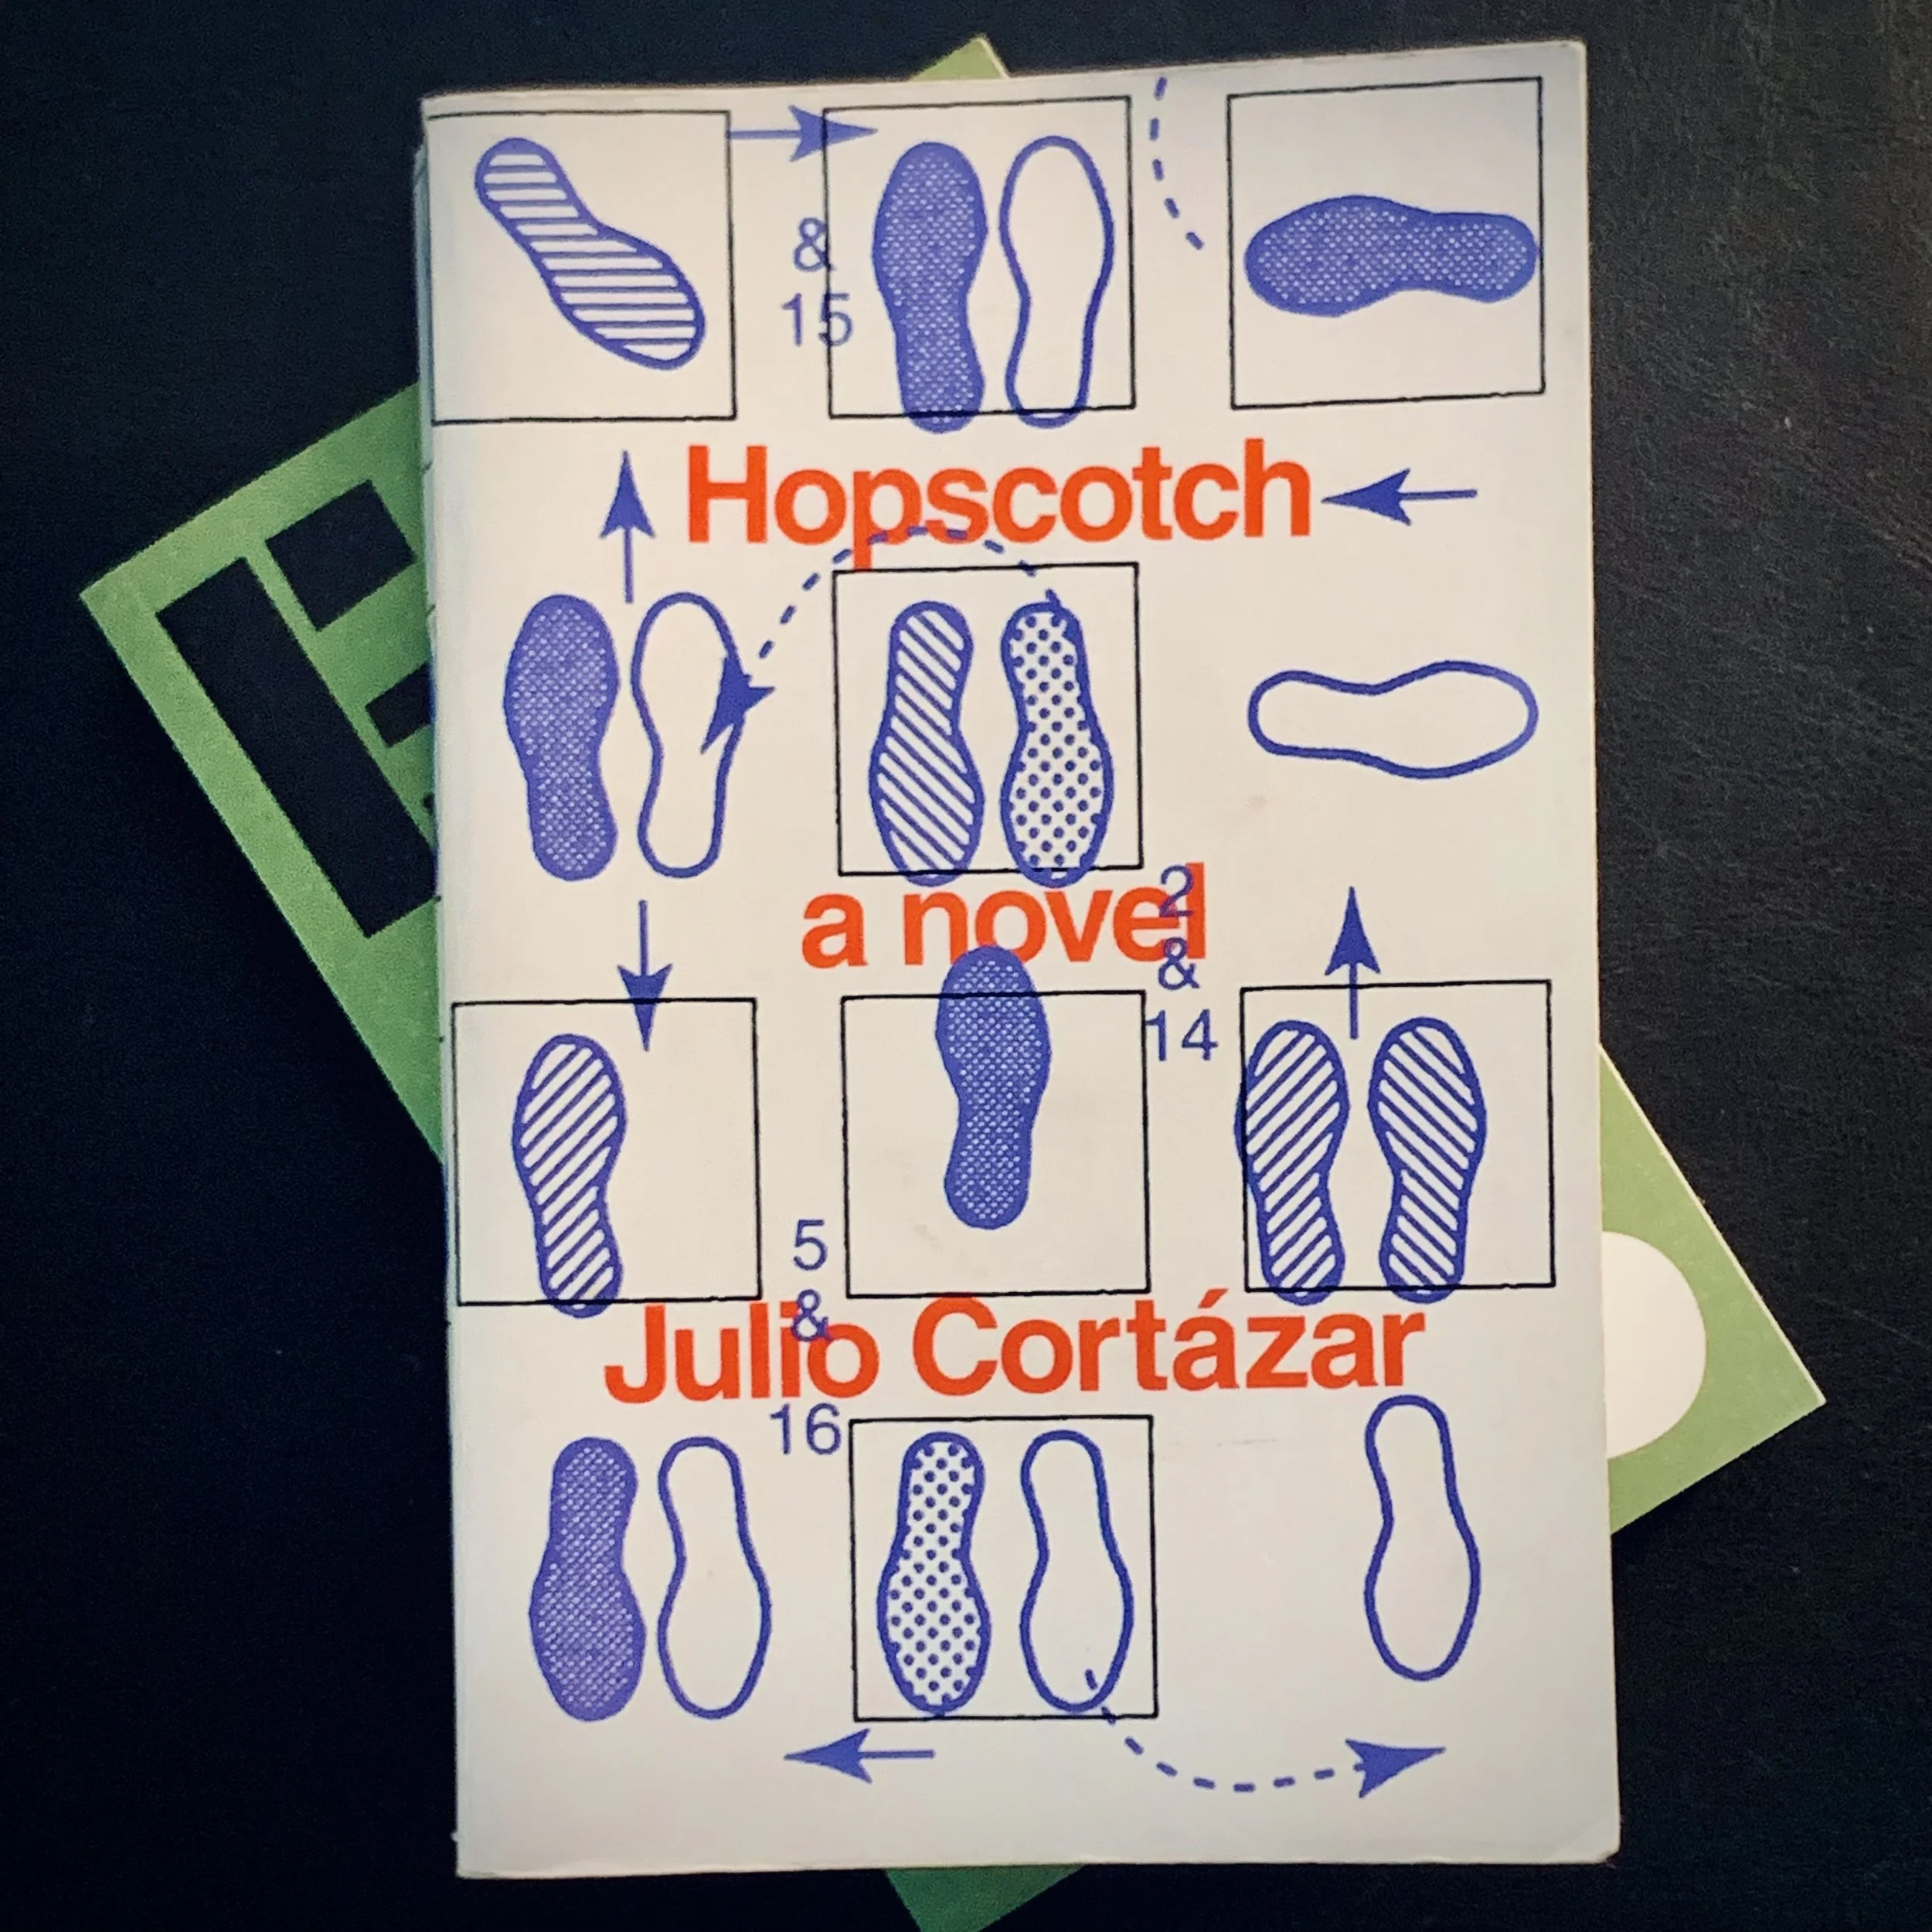 &
15
Hopscotch
a novel
2
&
14
5
&
16
Julio Cortázar